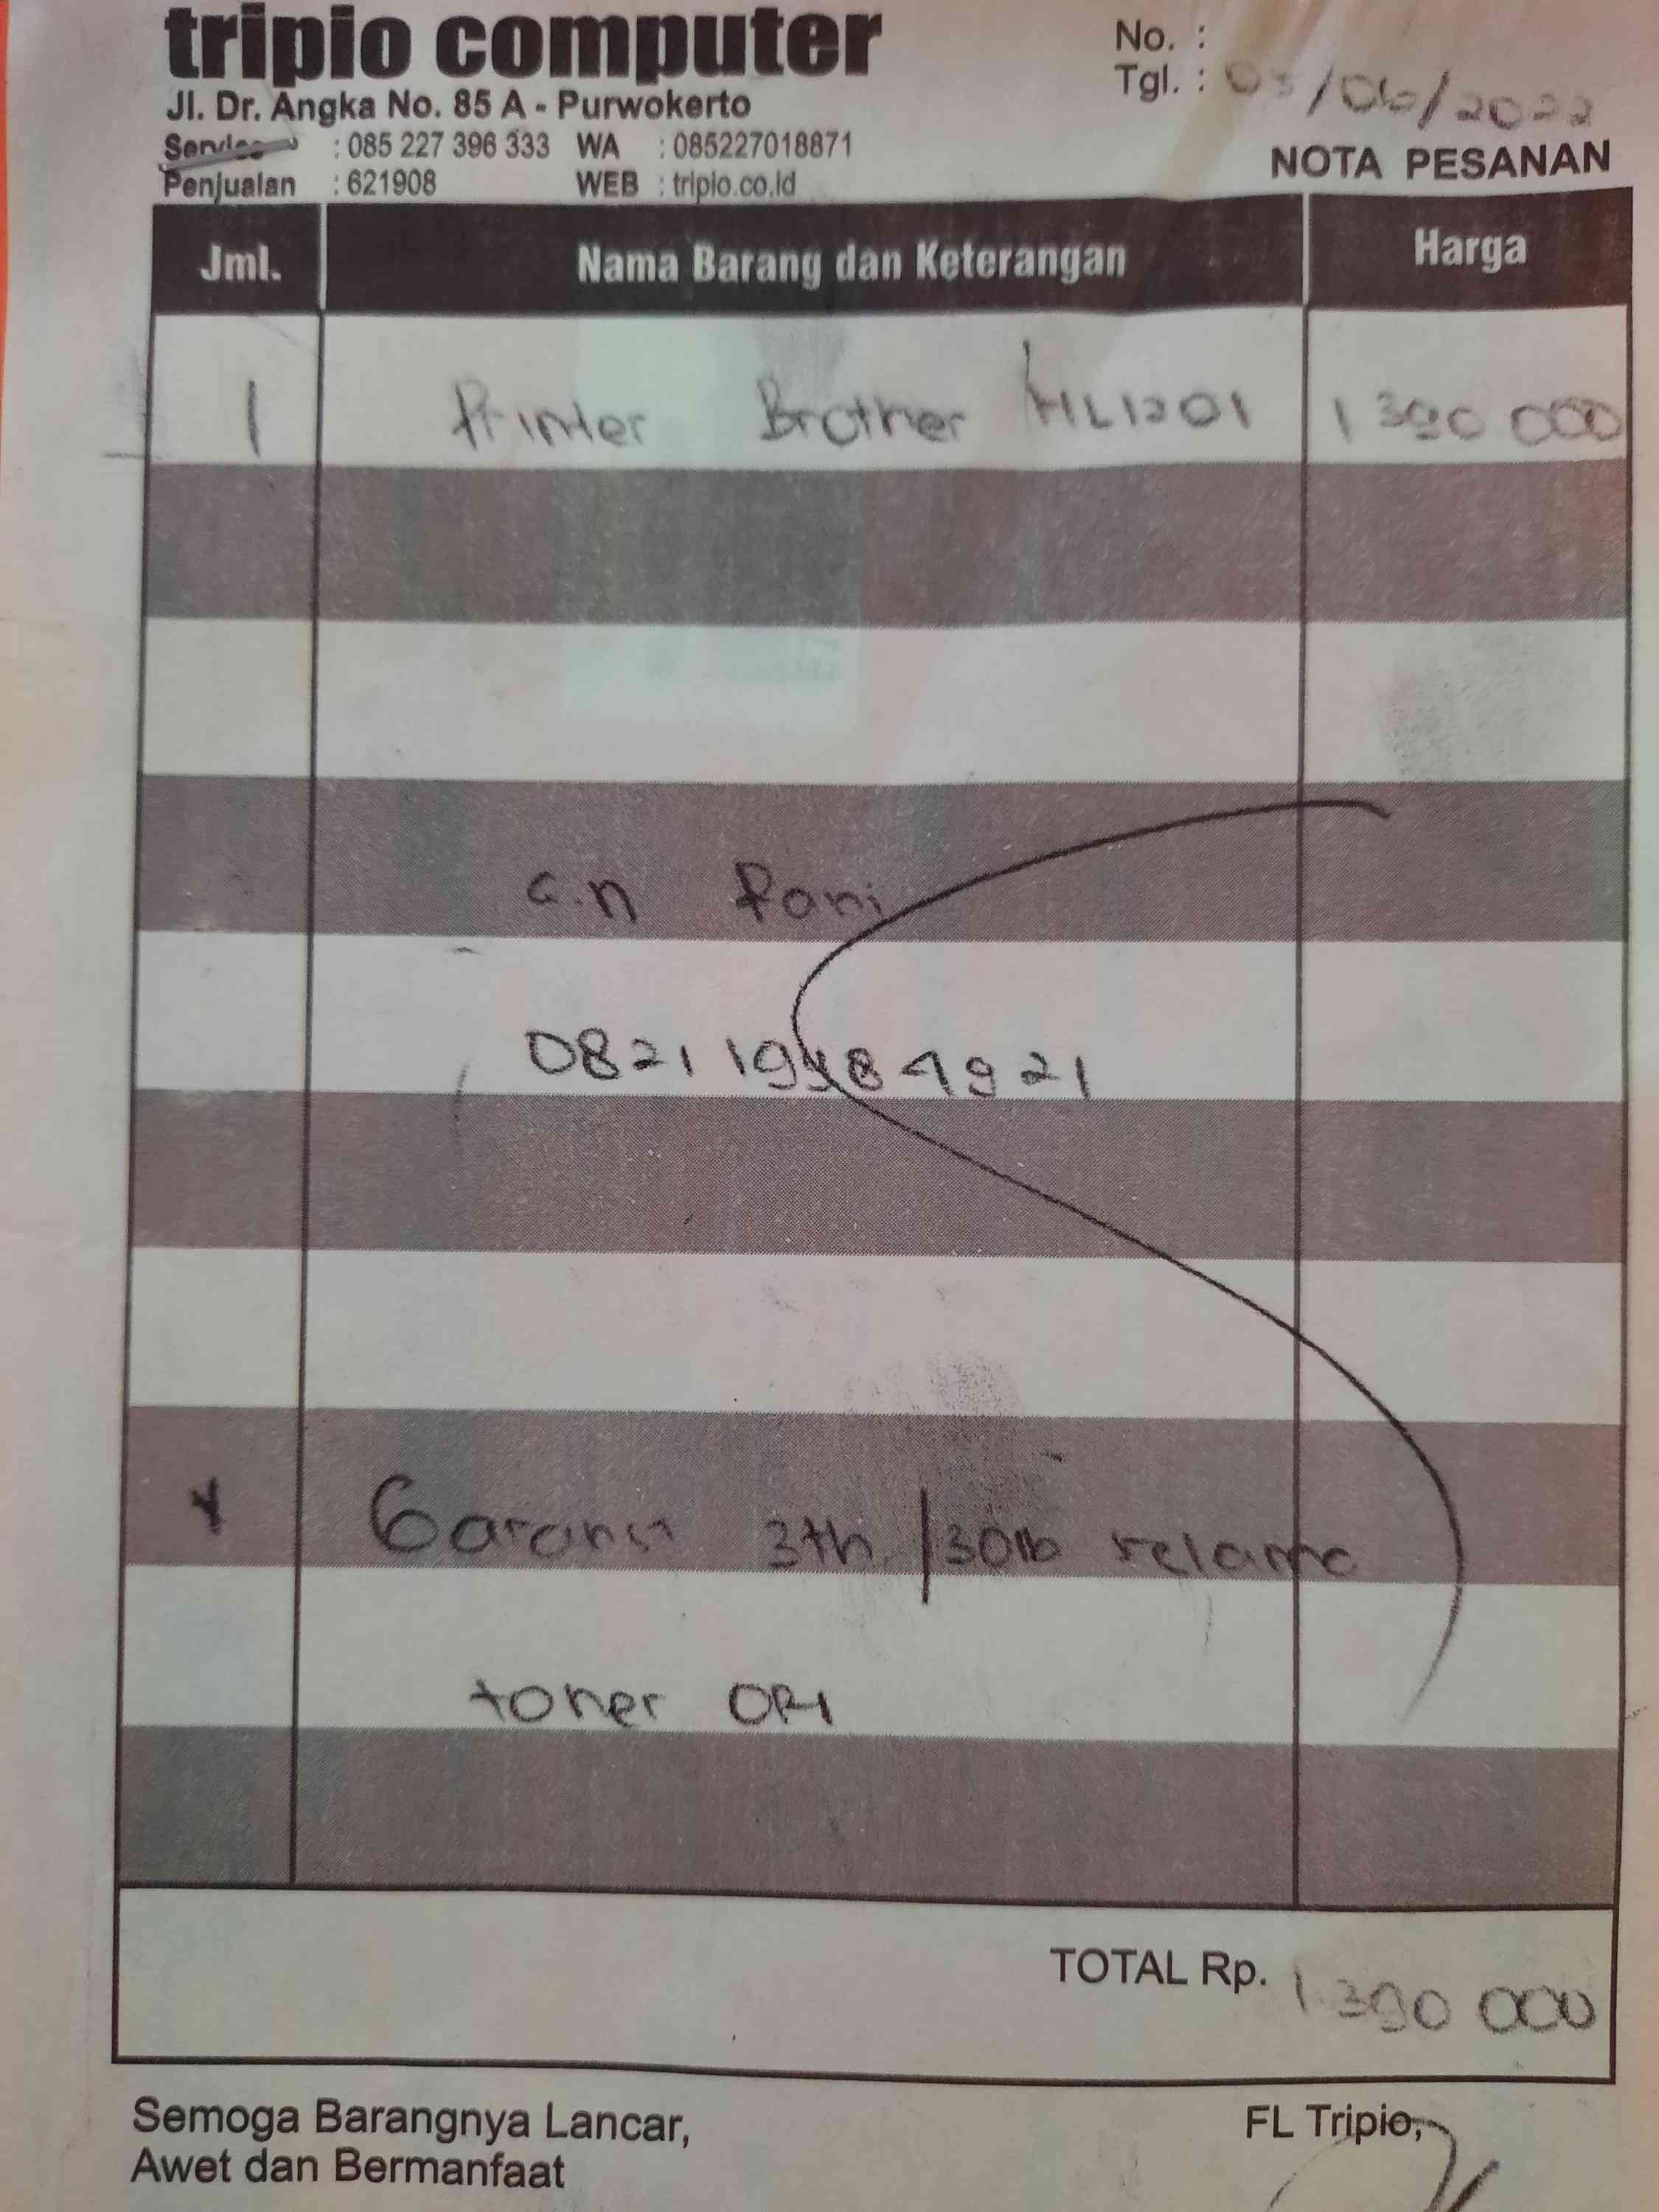 tripio computer
Jl. Dr. Angka No. 85 A - Purwokerto
Service : 085 227 396 333 WA : 085227018871
Penjualan : 621908 WEB : tripio.co.id
No. :
Tgl. : 03/06/2022
NOTA PESANAN
Jml. Nama Barang dan Keterangan Harga
1 Printer Brother HL1201 1390 000
a.n Rani
Garansi 3th /30lb
toner ORI
TOTAL Rp. 1.390 000
Semoga Barangnya Lancar,
Awet dan Bermanfaat
FL Tripio,